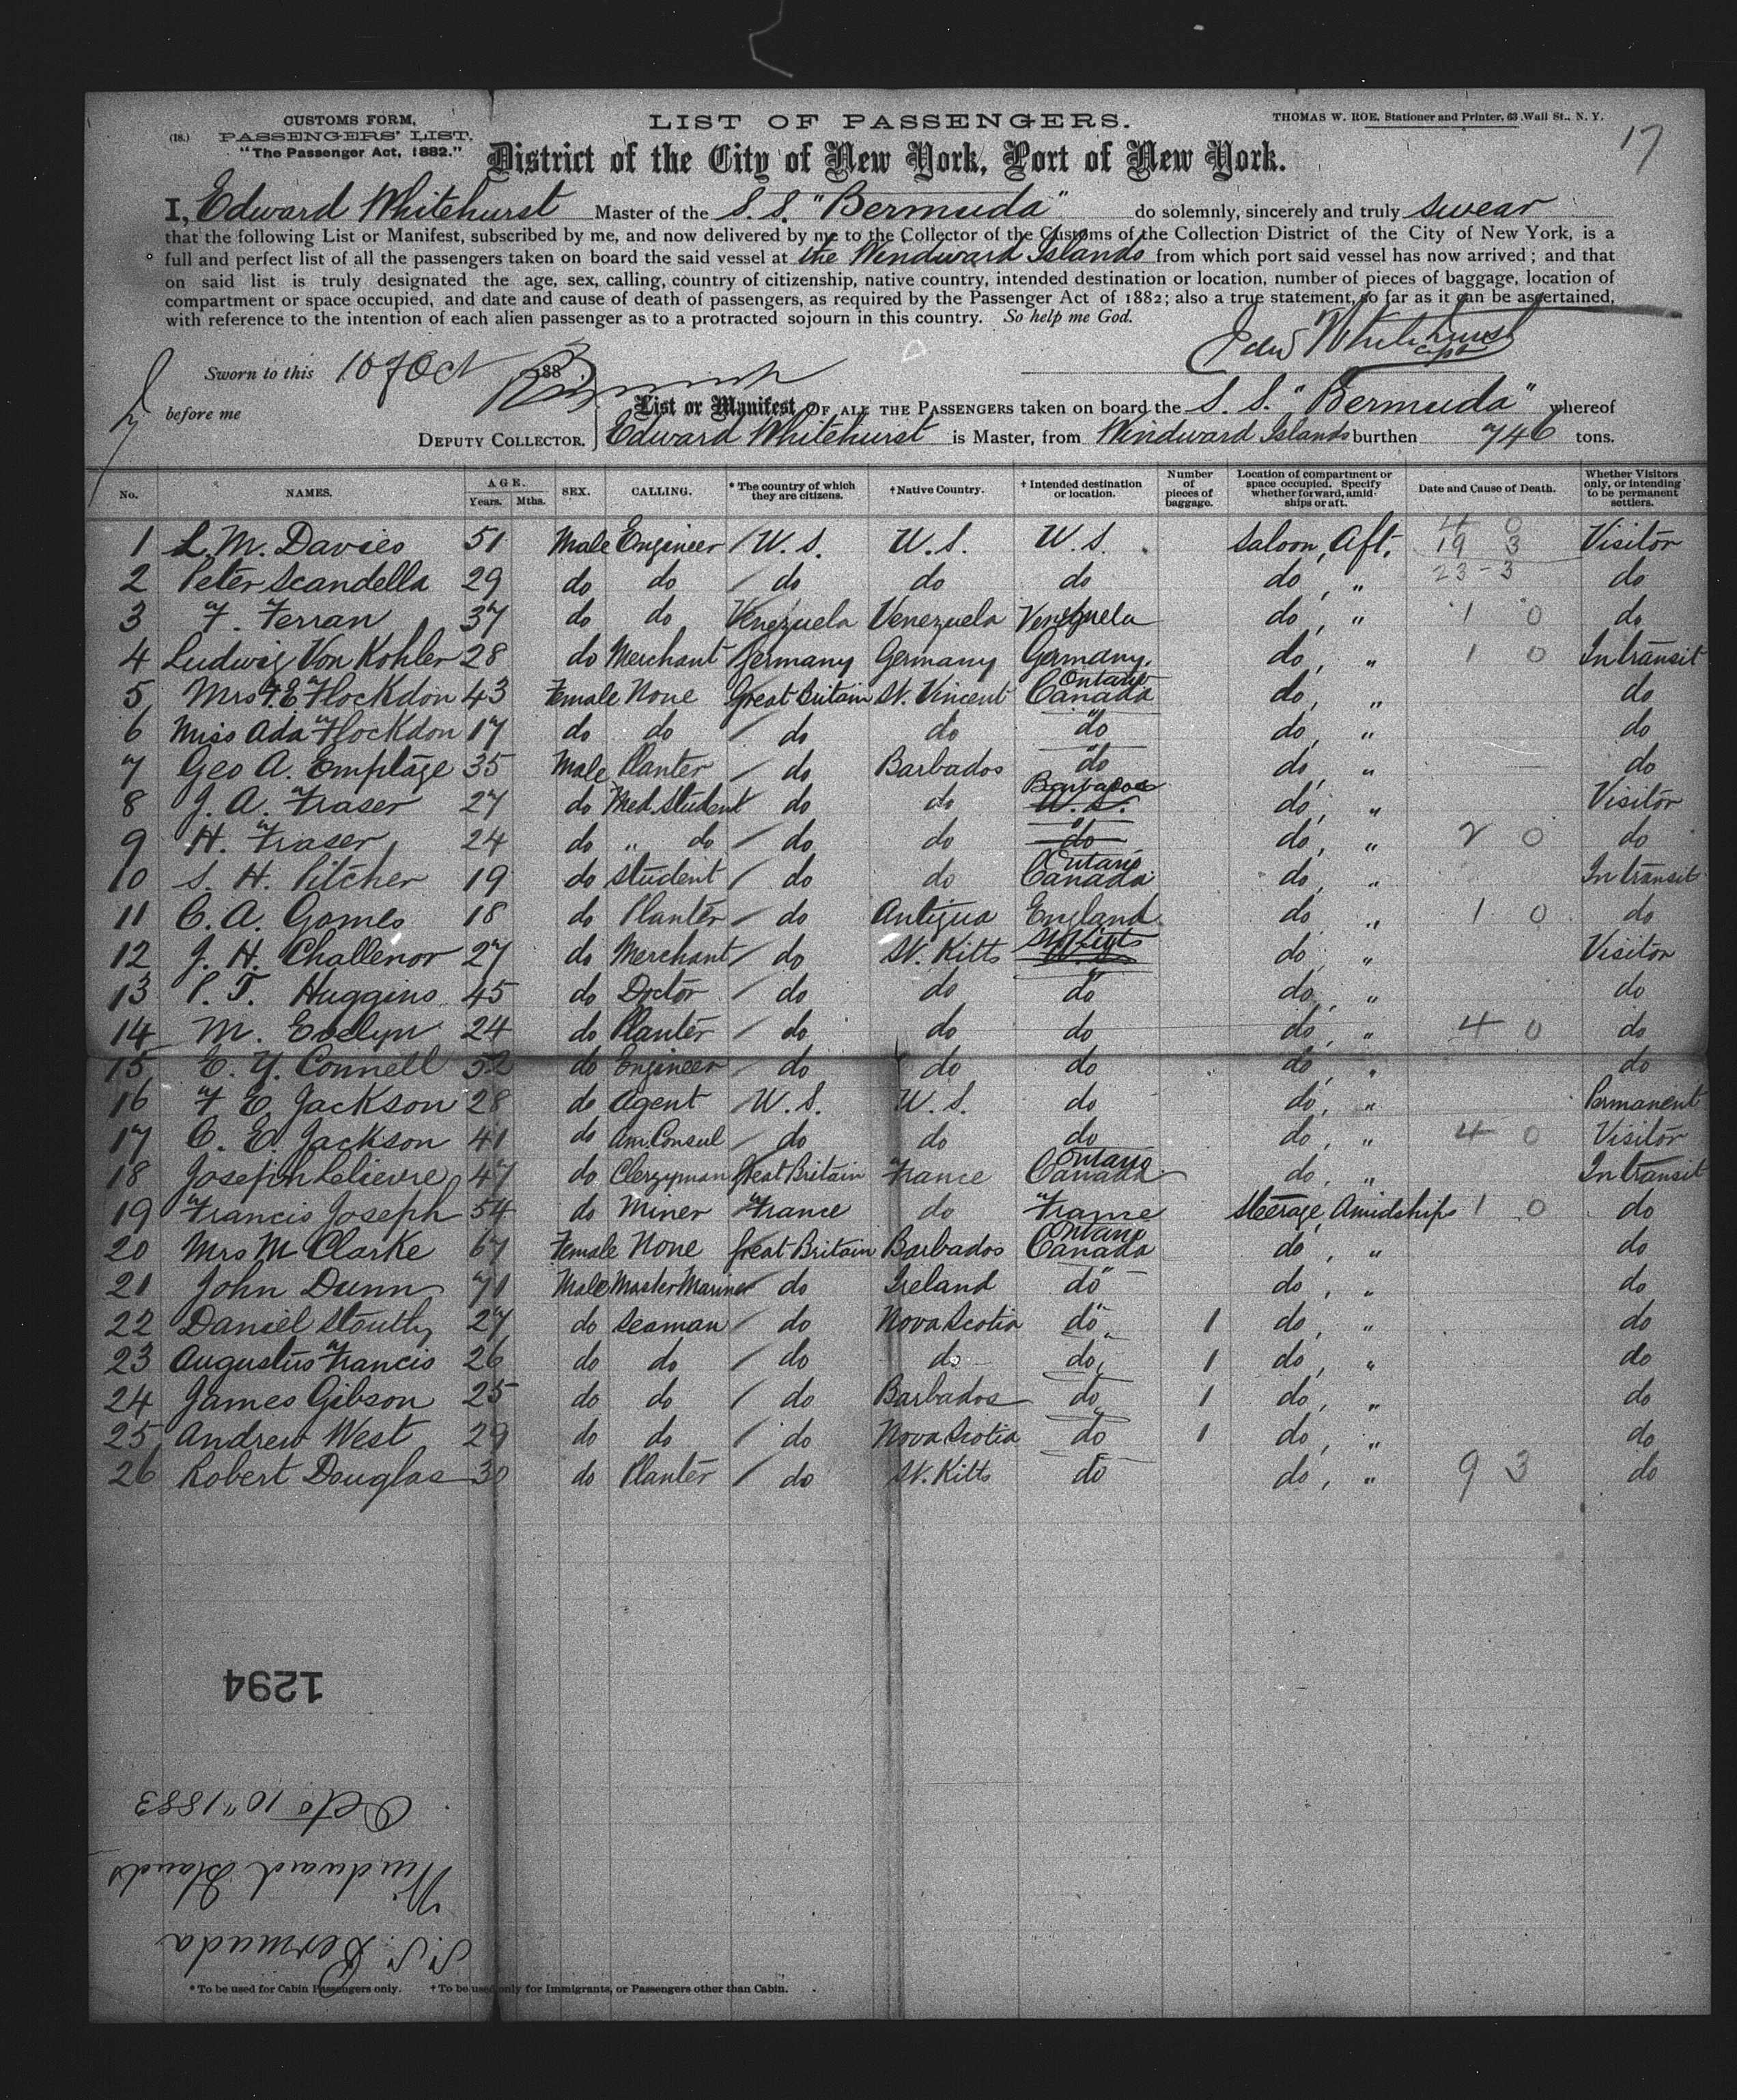 CUSTOMS FORM,
(18.) PASSENGERS' LIST.
"The Passenger Act, 1882."
LIST OF PASSENGERS.
THOMAS W. ROE, Stationer and Printer, 63 Wall St., N. Y.
17
District of the City of New York, Port of New York.
I, Edward Whitehurst Master of the S. S. "Bermuda" do solemnly, sincerely and truly swear
that the following List or Manifest, subscribed by me, and now delivered by me to the Collector of the Customs of the Collection District of the City of New York, is a
full and perfect list of all the passengers taken on board the said vessel at the Windward Islands from which port said vessel has now arrived; and that
on said list is truly designated the age, sex, calling, country of citizenship, native country, intended destination or location, number of pieces of baggage, location of
compartment or space occupied, and date and cause of death of passengers, as required by the Passenger Act of 1882; also a true statement, so far as it can be ascertained,
with reference to the intention of each alien passenger as to a protracted sojourn in this country. So help me God.
Edw Whitehurst
Sworn to this 10 of Oct 188
before me
DEPUTY COLLECTOR.
List or Manifest OF ALL THE PASSENGERS taken on board the S. S. "Bermuda" whereof
Edward Whitehurst is Master, from Windward Islands burthen 746 tons.
No. NAMES. AGE. Years. Mths. SEX. CALLING. * The country of which they are citizens. † Native Country. † Intended destination or location. Number of pieces of baggage. Location of compartment or space occupied. Specify whether forward, amidships or aft. Date and Cause of Death. Whether Visitors only, or intending to be permanent settlers.
4 0
1 L. M. Davies 51 Male Engineer / U. S. U. S. U. S. Saloon, Aft. 19 3 Visitor
2 Peter Scandella 29 do do / do do do do, " 23 - 3 do
3 F. Ferran 37 do do Venezuela Venezuela Venezuela do, " 1 0 do
4 Ludwig Von Kohler 28 do Merchant Germany Germany Germany. do, " 1 0 In transit
5 Mrs F. E. Flockdon 43 Female None Great Britain St. Vincent Ontario Canada do, " do
6 Miss Ada Flockdon 17 do do / do do "do do, " do
7 Geo A. Emptage 35 Male Planter / do Barbados "do do, " do
8 J. A. Fraser 27 do Med. Student do do Barbados U. S. do, " Visitor
9 H. Fraser 24 do " do / do do " do do, " 2 0 do
10 S. H. Pitcher 19 do Student / do do Ontario Canada do, " In transit
11 C. A. Gomes 18 do Planter / do Antigua England do, " 1 0 do
12 J. H. Challenor 27 do Merchant / do St. Kitts St Kitts U. S. do, " Visitor
13 P. T. Huggins 45 do Doctor / do do "do do, " do
14 M. Evelyn 24 do Planter / do do do do, " 4 0 do
15 E. Y. Connell 52 do Engineer / do do do do, " do
16 F E Jackson 28 do Agent / U. S. U. S. do do, " Permanent
17 C. E. Jackson 41 do Am. Consul / do do do do, " 4 0 Visitor
18 Joseph Lelievre 47 do Clergyman Great Britain France Ontario Canada do, " In transit
19 Francis Joseph 54 do Miner France do France Steerage, Amidships 1 0 do
20 Mrs M Clarke 67 Female None Great Britain Barbados Ontario Canada do, " do
21 John Dunn 71 Male Master Mariner do Ireland do" do, " do
22 Daniel Stouth 27 do Seaman / do Nova Scotia do" 1 do, " do
23 Augustus Francis 26 do do / do do do" 1 do, " do
24 James Gibson 25 do do / do Barbados do" 1 do, " do
25 Andrew West 29 do do / do Nova Scotia do 1 do, " do
26 Robert Douglas 30 do Planter / do St. Kitts do do, " 9 3 do
1294
S. S. Bermuda
Windward Islands
Octo 10" 1883
* To be used for Cabin Passengers only. † To be used only for Immigrants, or Passengers other than Cabin.